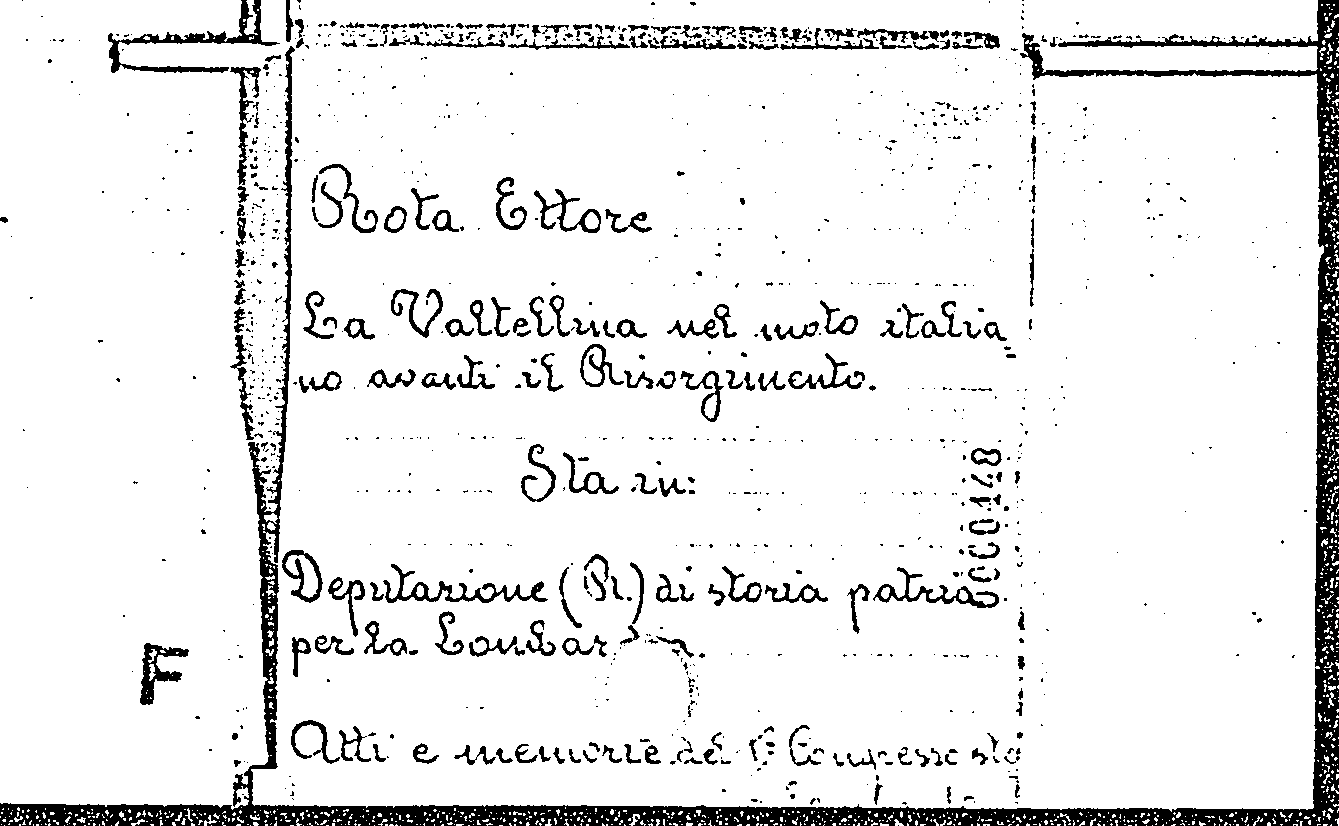 Rota Ettore
La Valtellina nel moto italia_
no avanti il Risorgimento.
Sta in:
Deputazione (R.) di storia patria
per la Lombar
Atti e memorie del 1° Congresso sto
0000148
F